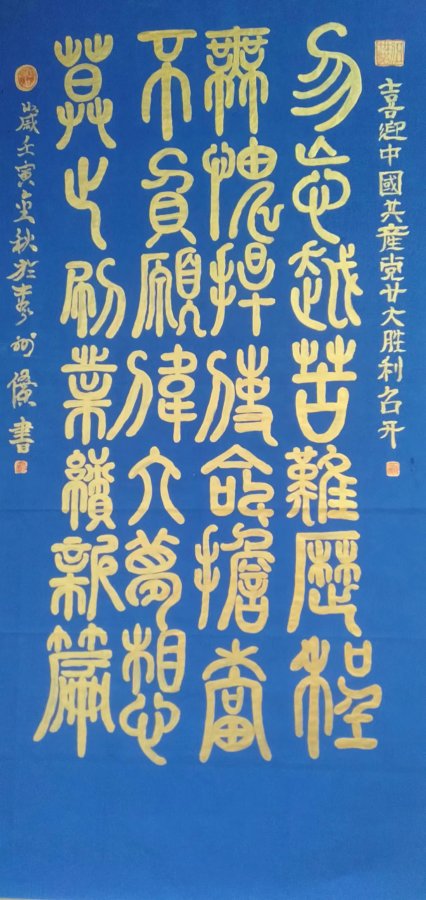 喜迎中國共產党廿大胜利召开
勿忘越苦難歷程
無愧捍使命擔當
不負願偉大夢想
莫止創業續新篇
歲壬寅金秋於州書